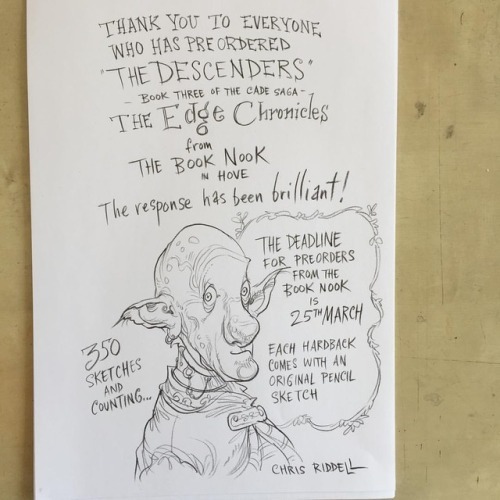 THANK YOU TO EVERYONE
WHO HAS PREORDERED
"THE DESCENDERS"
- BOOK THREE OF THE CADE SAGA -
THE Edge Chronicles
from
THE BOOK NOOK
IN HOVE
The response has been brilliant!
THE DEADLINE
FOR PREORDERS
FROM THE
BOOK NOOK
IS
25TH MARCH
EACH HARDBACK
COMES WITH AN
ORIGINAL PENCIL
SKETCH
350
SKETCHES
AND
COUNTING...
CHRIS RIDDELL